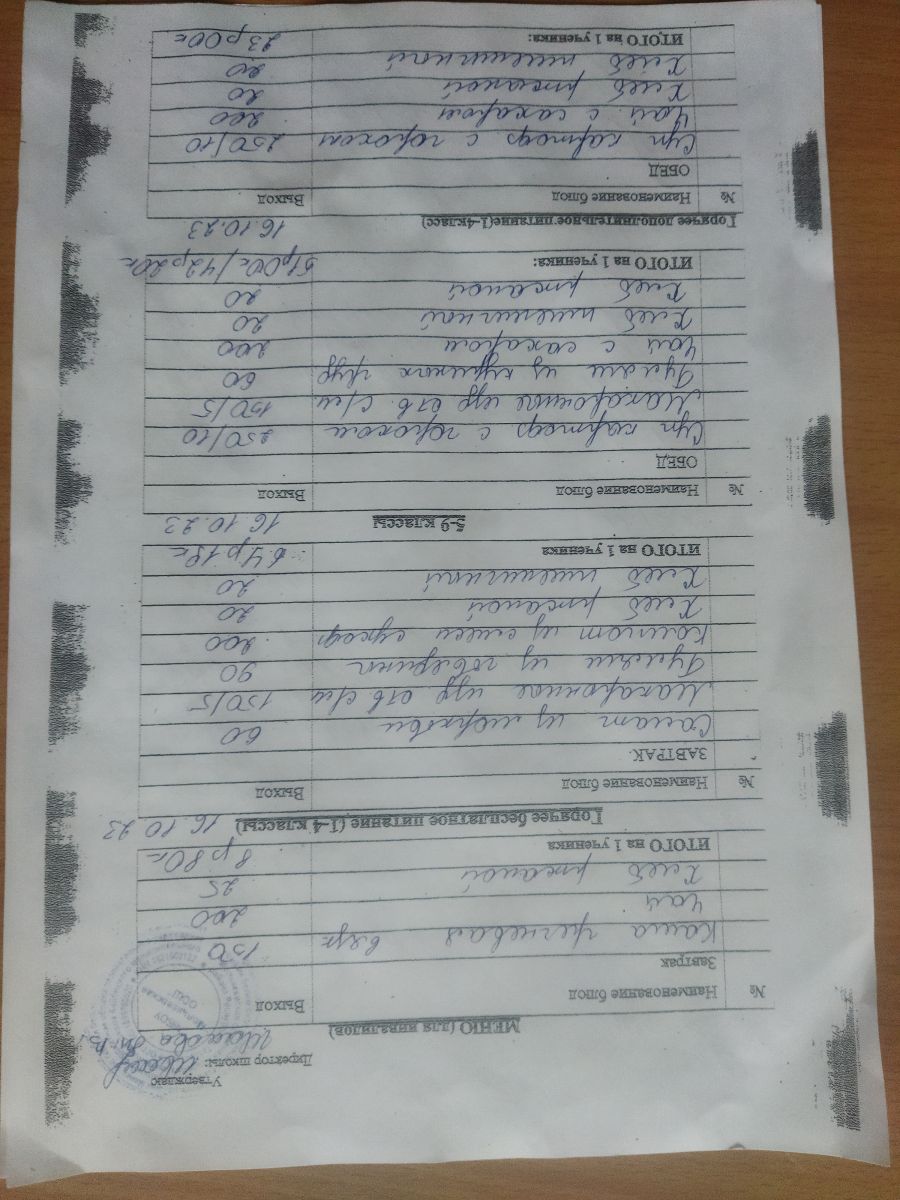 Утверждаю:
Директор школы:
МЕНЮ (для инвалидов)
№ Наименование блюд Выход
Завтрак
Каша гречневая 150
Чай 200
Хлеб ржаной 25
ИТОГО на 1 ученика 8р80к
Горячее бесплатное питание (1-4 классы) 16.10.23
№ Наименование блюд Выход
ЗАВТРАК
Салат из моркови 60
Макаронные изд отв с/м 150/5
Гуляш из говядины 90
Компот из смеси сухоф 200
Хлеб ржаной 20
Хлеб пшеничный 20
ИТОГО на 1 ученика
5-9 классы 16.10.23
№ Наименование блюд Выход
ОБЕД
Суп картоф с горохом 250/10
Макаронные изд отв с/м 150/5
Гуляш из куриных груд 60
Чай с сахаром 200
Хлеб пшеничный 20
Хлеб ржаной 20
ИТОГО на 1 ученика: 51р00к/42р20к
Горячее дополнительное питание(1-4класс) 16.10.23
№ Наименование блюд Выход
ОБЕД
Суп картоф с горохом 250/10
Чай с сахаром 200
Хлеб ржаной 20
Хлеб пшеничный 20
ИТОГО на 1 ученика: 23р00к